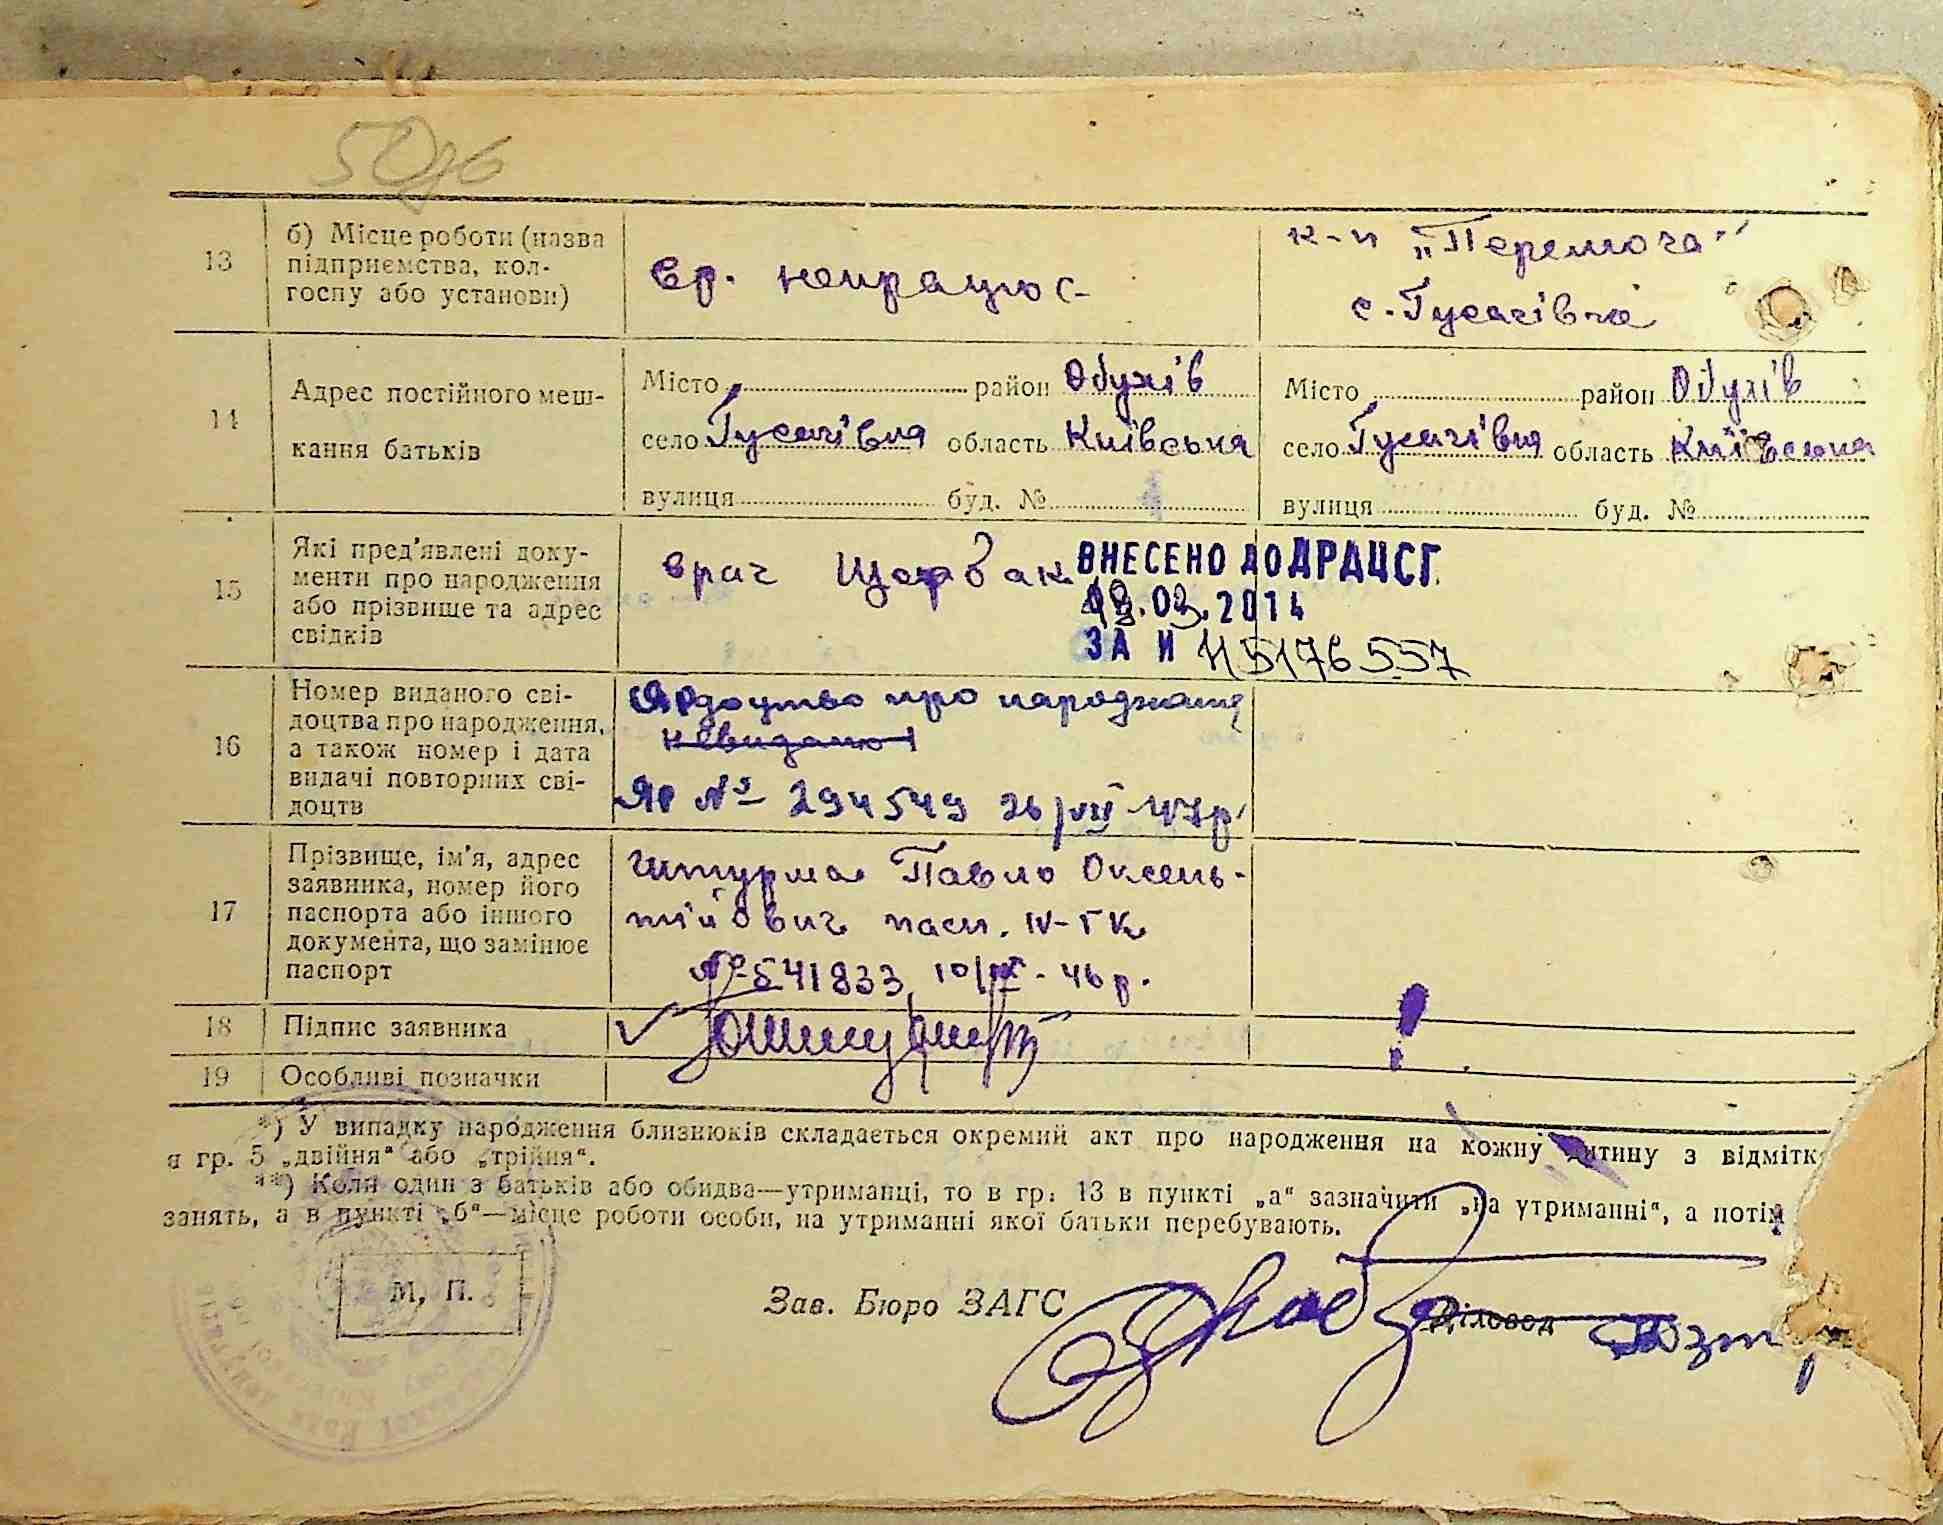 50зв
13
б) Місце роботи (назва
підприємства, кол-
госпу або установи)
вр. непрацює
к-п „Перемога"
с. Гусачівка
14
Адрес постійного меш-
кання батьків
Місто район Обухів
село Гусачівка область Київська
вулиця буд. №
Місто район Обухів
село Гусачівка область Київська
вулиця буд. №
15
Які пред'явлені доку-
менти про народження
або прізвище та адрес
свідків
врач Щербак
ВНЕСЕНО ДО ДРАЦСГ.
.03.2014
ЗА И 45176557
16
Номер виданого сві-
доцтва про народження,
а також номер і дата
видачі повторних сві-
доцтв
про народження
невидано
ЯР № 294549 26/VII-47р.
17
Прізвище, ім'я, адрес
заявника, номер його
паспорта або іншого
документа, що замінює
паспорт
Штурма Павло Оксень-
тійович пасп. IV-ГК
№ 541833 10/IX-46р.
18
Підпис заявника
19
Особливі позначки
*) У випадку народження близнюків складається окремий акт про народження на кожну дитину з відмітк
в гр. 5 „двійня" або „трійня".
**) Коли один з батьків або обидва—утриманці, то в гр. 13 в пункті „а" зазначити „на утриманні", а потім
занять, а в пункті „б"—місце роботи особи, на утриманні якої батьки перебувають.
М. П.
Зав. Бюро ЗАГС
Діловод